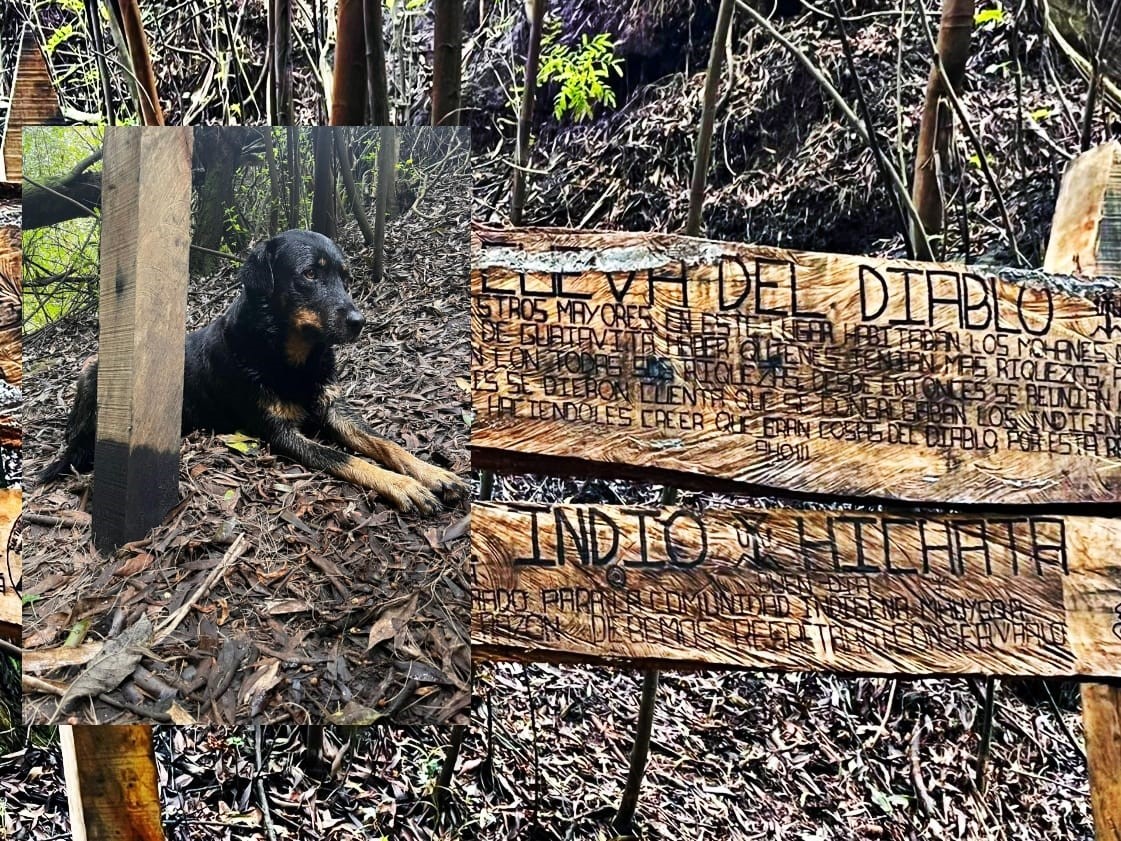 CUEVA DEL DIABLO
STROS MAYORES EN ESTE LUGAR HABITABAN LOS MOHANES
DE GUATAVITA HABER QUIENES TENIAN MAS RIQUEZAS
N CON TODAS LAS RIQUEZAS, DESDE ENTONCES SE REUNIAN
ES SE DIERON CUENTA QUE SE CONGREGABAN LOS INDIGEN
HACIENDOLES CREER QUE ERAN COSAS DEL DIABLO, POR ESTA
INDIO HICHATA
UNEN DIA
PARA LA COMUNIDAD INDIGENA MHUYSQA
RAZON DEBEMOS RESPETAR Y CONSERVARLO